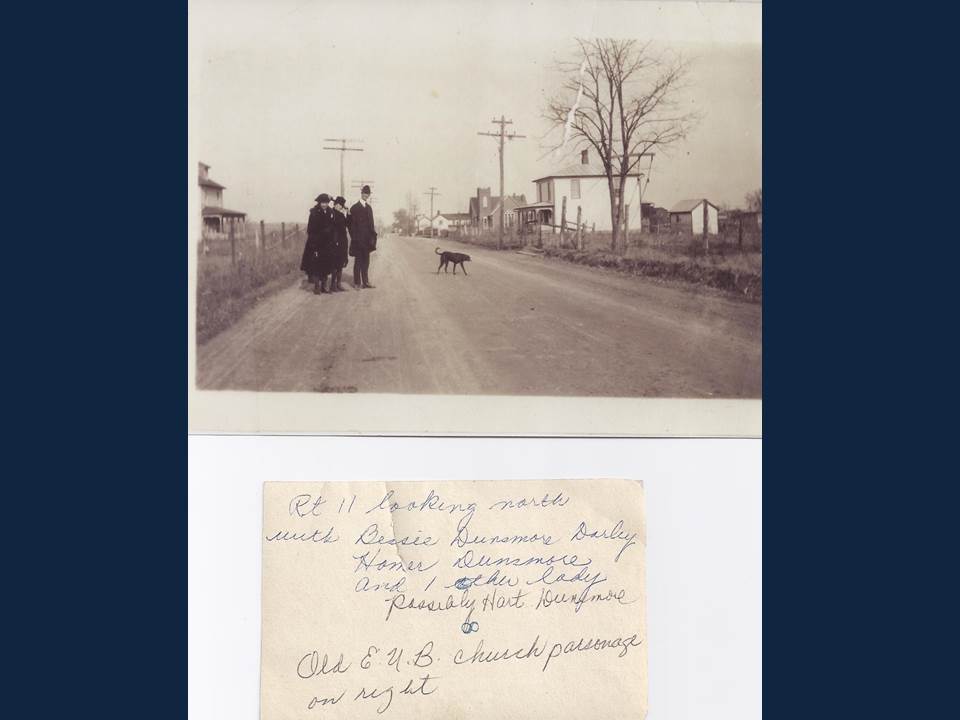 Rt 11 looking north
with Bessie Dunsmore Darby
Homer Dunsmore
And 1 other lady
possibly Hart Dunsmore
Old E.U.B. church parsonage
on right